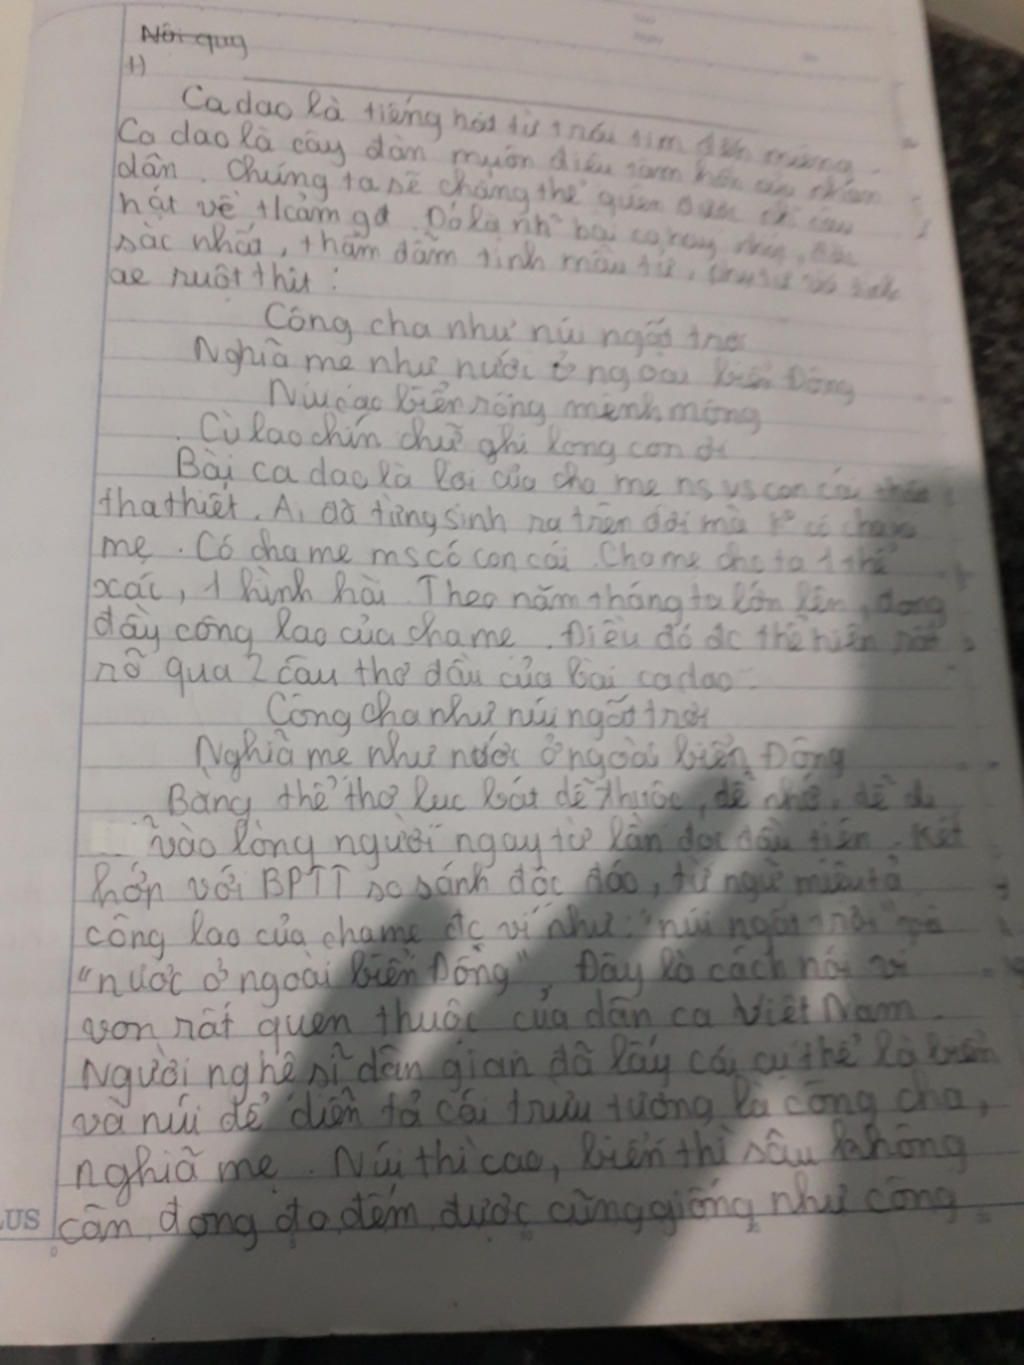 Nôi quy
1)
Ca dao là tiếng hát từ trái tim đến
Ca dao là cây đàn muôn điệu tâm hồn của nhân
dân. Chúng ta sẽ chẳng thể quên được
hát về t/cảm gđ. Đó là nh~ bài ca hay
sắc nhất, thắm đẫm tình mẫu tử,
ae ruột thịt:
Công cha như núi ngất trời
Nghĩa mẹ như nước ở ngoài biển Đông
Núi cao biển rộng mênh mông
Cù lao chín chữ ghi lòng con ơi
Bài ca dao là lời của cha mẹ ns vs con cái
tha thiết. Ai đã từng sinh ra trên đời mà ko có cha
mẹ. Có cha mẹ ms có con cái. Cha mẹ cho ta 1 thể
xác, 1 hình hài. Theo năm tháng ta lớn lên, đong
đầy công lao của cha mẹ. Điều đó đc thể hiện rất
rõ qua 2 câu thơ đầu của bài ca dao
Công cha như núi ngất trời
Nghĩa mẹ như nước ở ngoài biển Đông
Bằng thể thơ lục bát dễ thuộc, dễ nhớ, dễ đi
vào lòng người ngay từ lần đọc đầu tiên. Kết
hợp với BPTT so sánh độc đáo, từ ngữ miêu tả
công lao của cha mẹ đc ví như: "núi ngất trời" và
"nước ở ngoài biển Đông", Đây là cách nói ví
von rất quen thuộc của dân ca Việt Nam.
Người nghệ sĩ dân gian đã lấy cái cụ thể là biển
và núi để diễn tả cái trừu tượng là công cha,
nghĩa mẹ. Núi thì cao, biển thì sâu không
cân, đong đo đếm được cũng giống như công
US